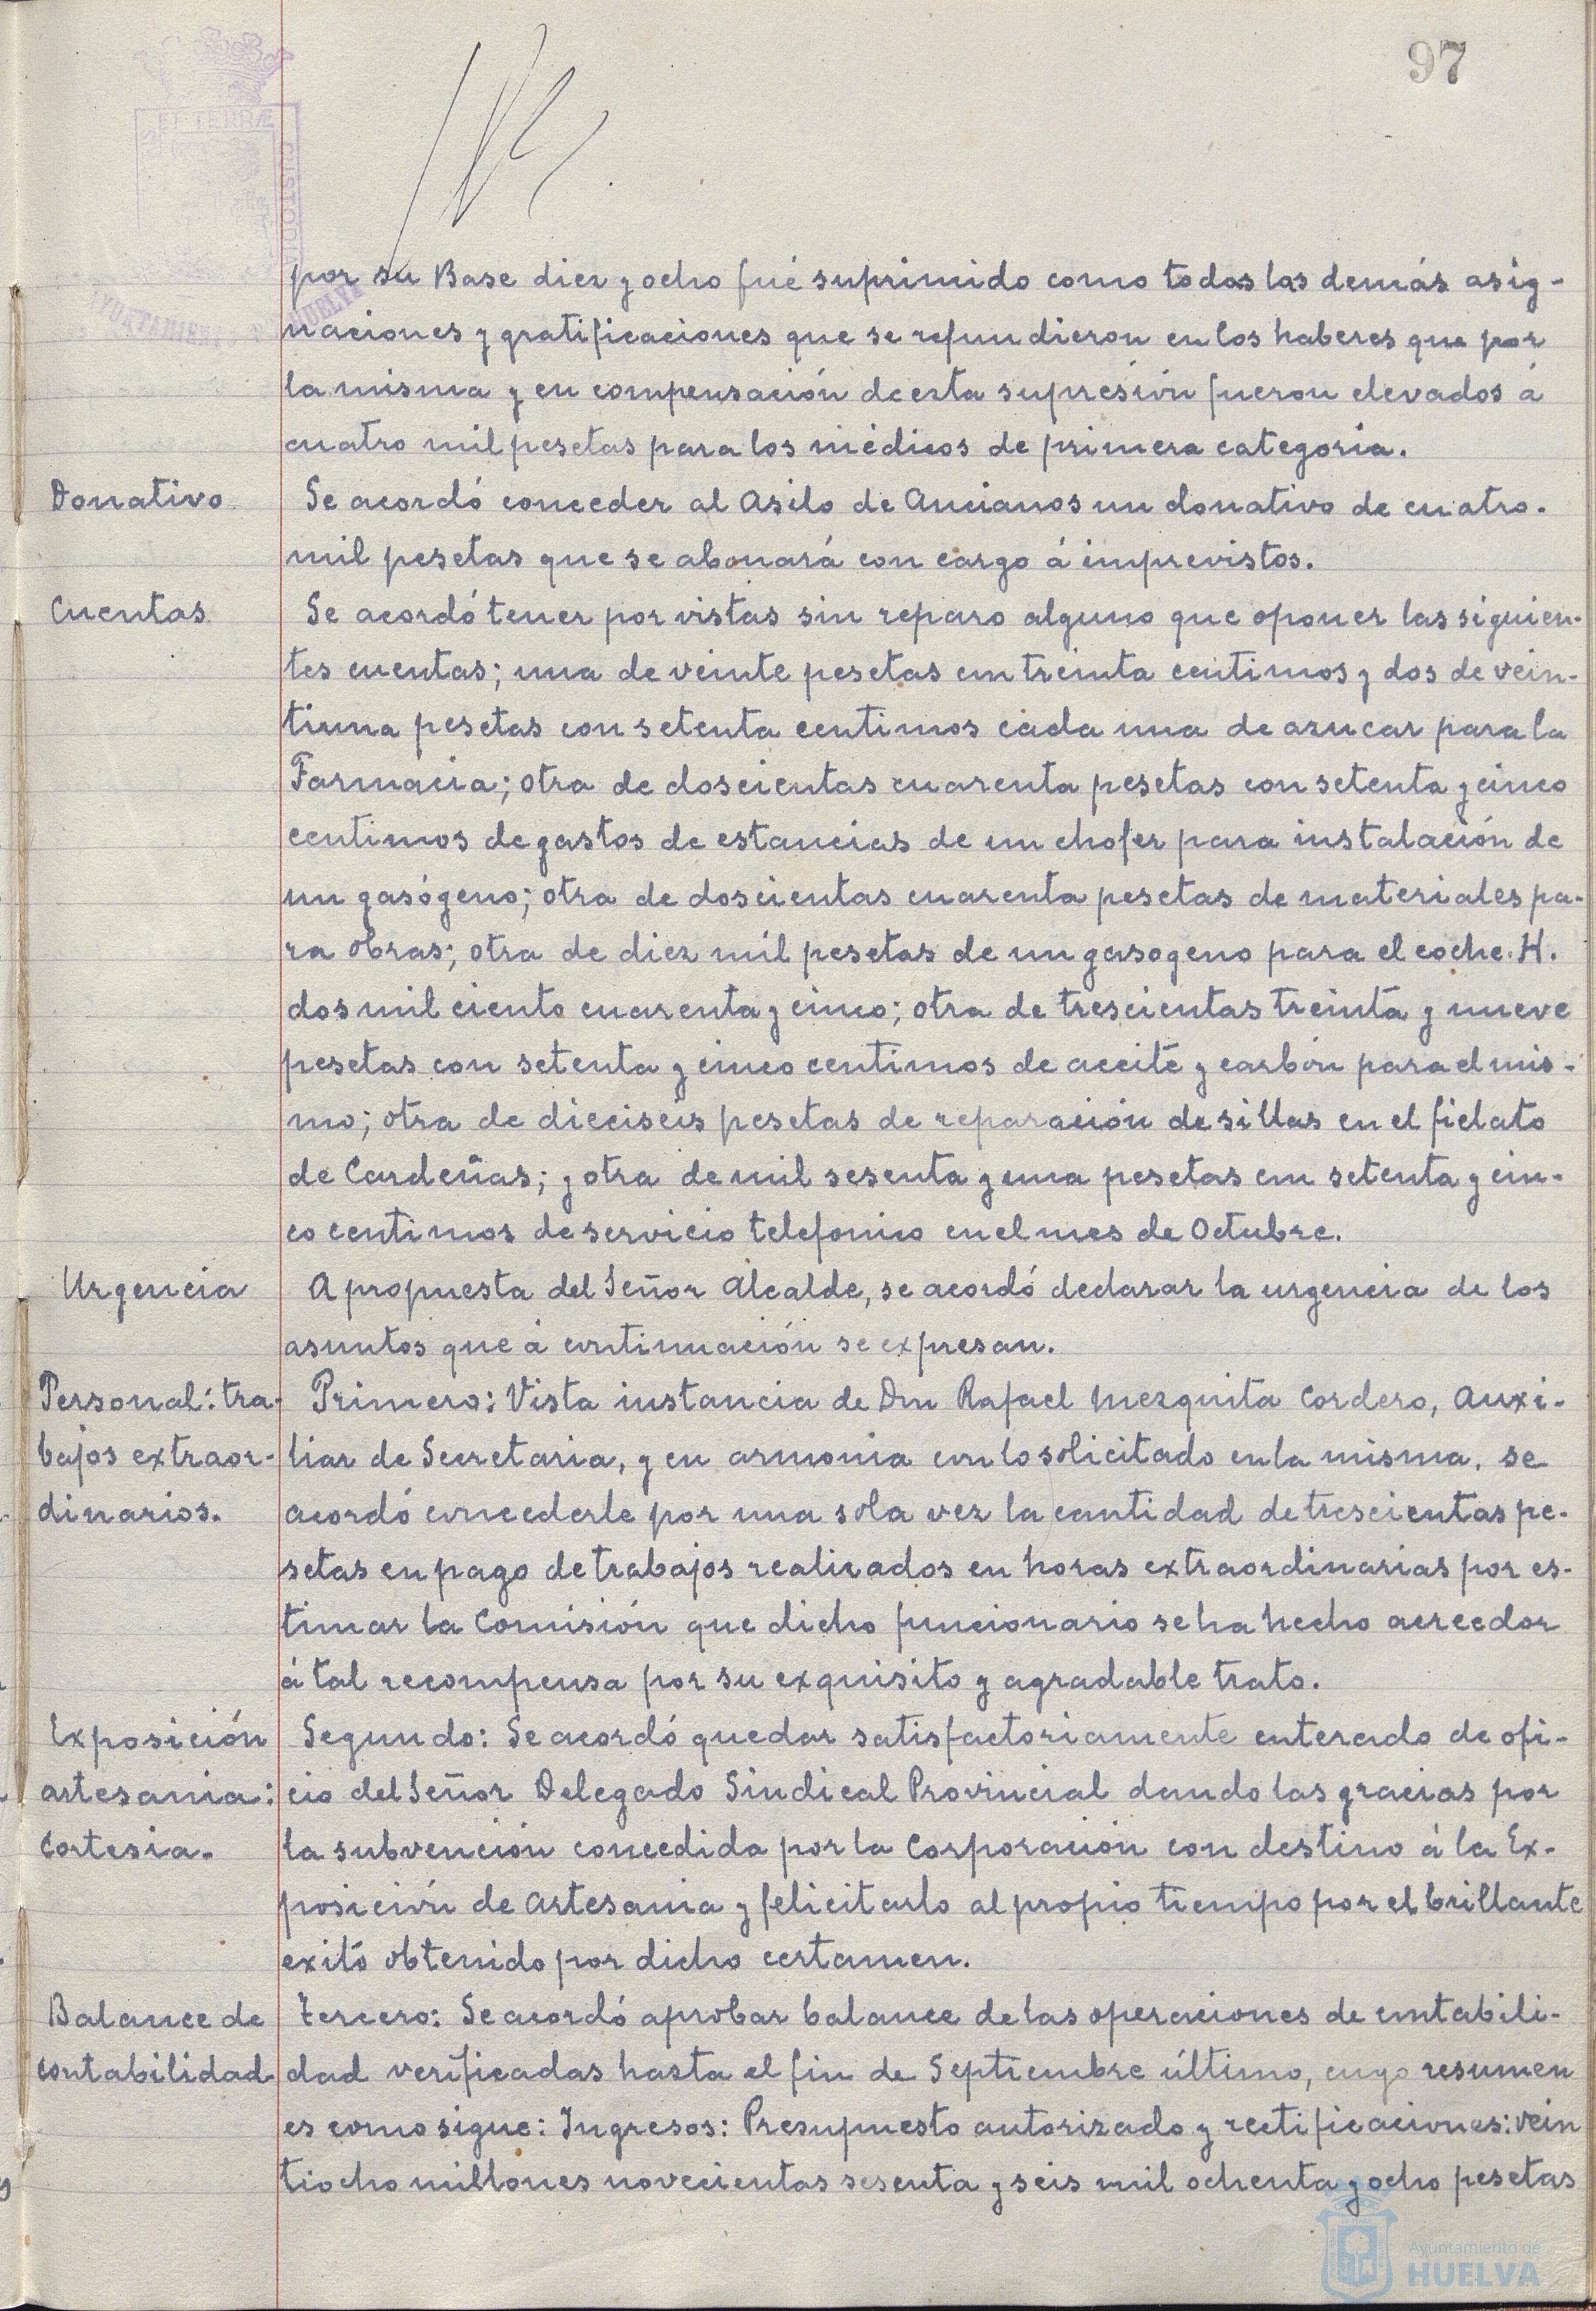 97
ET TERRÆ
CUSTODIA
AYUNTAMIENTO DE HUELVA
por su Base diez y ocho fué suprimido como todas las demás asig-
naciones y gratificaciones que se refundieron en los haberes que por
la misma y en compensación de esta supresión fueron elevados á
cuatro mil pesetas para los médicos de primera categoria.
Donativo Se acordó conceder al Asilo de Ancianos un donativo de cuatro.
mil pesetas que se abonará con cargo á imprevistos.
Cuentas Se acordó tener por vistas sin reparo alguno que oponer las siguien-
tes cuentas; una de veinte pesetas con treinta centimos y dos de vein-
tiuna pesetas con setenta centimos cada una de azucar para la
Farmacia; otra de doscientas cuarenta pesetas con setenta y cinco
centimos de gastos de estancias de un chofer para instalación de
un gasógeno; otra de doscientas cuarenta pesetas de materiales pa-
ra obras; otra de diez mil pesetas de un gasogeno para el coche. H.
dos mil ciento cuarenta y cinco; otra de trescientas treinta y nueve
pesetas con setenta y cinco centimos de aceite y carbón para el mis-
mo; otra de dieciseis pesetas de reparación de sillas en el fielato
de Cardeñas; y otra de mil sesenta y una pesetas con setenta y cin-
co centimos de servicio telefonico en el mes de Octubre.
Urgencia A propuesta del Señor Alcalde, se acordó declarar la urgencia de los
asuntos que á continuación se expresan.
Personal: tra- Primero: Vista instancia de Don Rafael Mezquita Cordero, Auxi-
bajos extraor- liar de Secretaria, y en armonia con lo solicitado en la misma, se
dinarios. acordó concederle por una sola vez la cantidad de trescientas pe-
setas en pago de trabajos realizados en horas extraordinarias por es-
timar la Comisión que dicho funcionario se ha hecho acreedor
á tal recompensa por su exquisito y agradable trato.
Exposición Segundo: Se acordó quedar satisfactoriamente enterado de ofi-
artesania: cio del Señor Delegado Sindical Provincial dando las gracias por
Cortesia. la subvención concedida por la Corporación con destino á la Ex-
posición de Artesania y felicitarlo al propio tiempo por el brillante
exitó obtenido por dicho certamen.
Balance de Tercero: Se acordó aprobar balance de las operaciones de contabili-
contabilidad dad verificadas hasta el fin de Septiembre último, cuyo resumen
es como sigue: Ingresos: Presupuesto autorizado y rectificaciones: vein
tiocho millones novecientas sesenta y seis mil ochenta y ocho pesetas
Ayuntamiento de
HUELVA